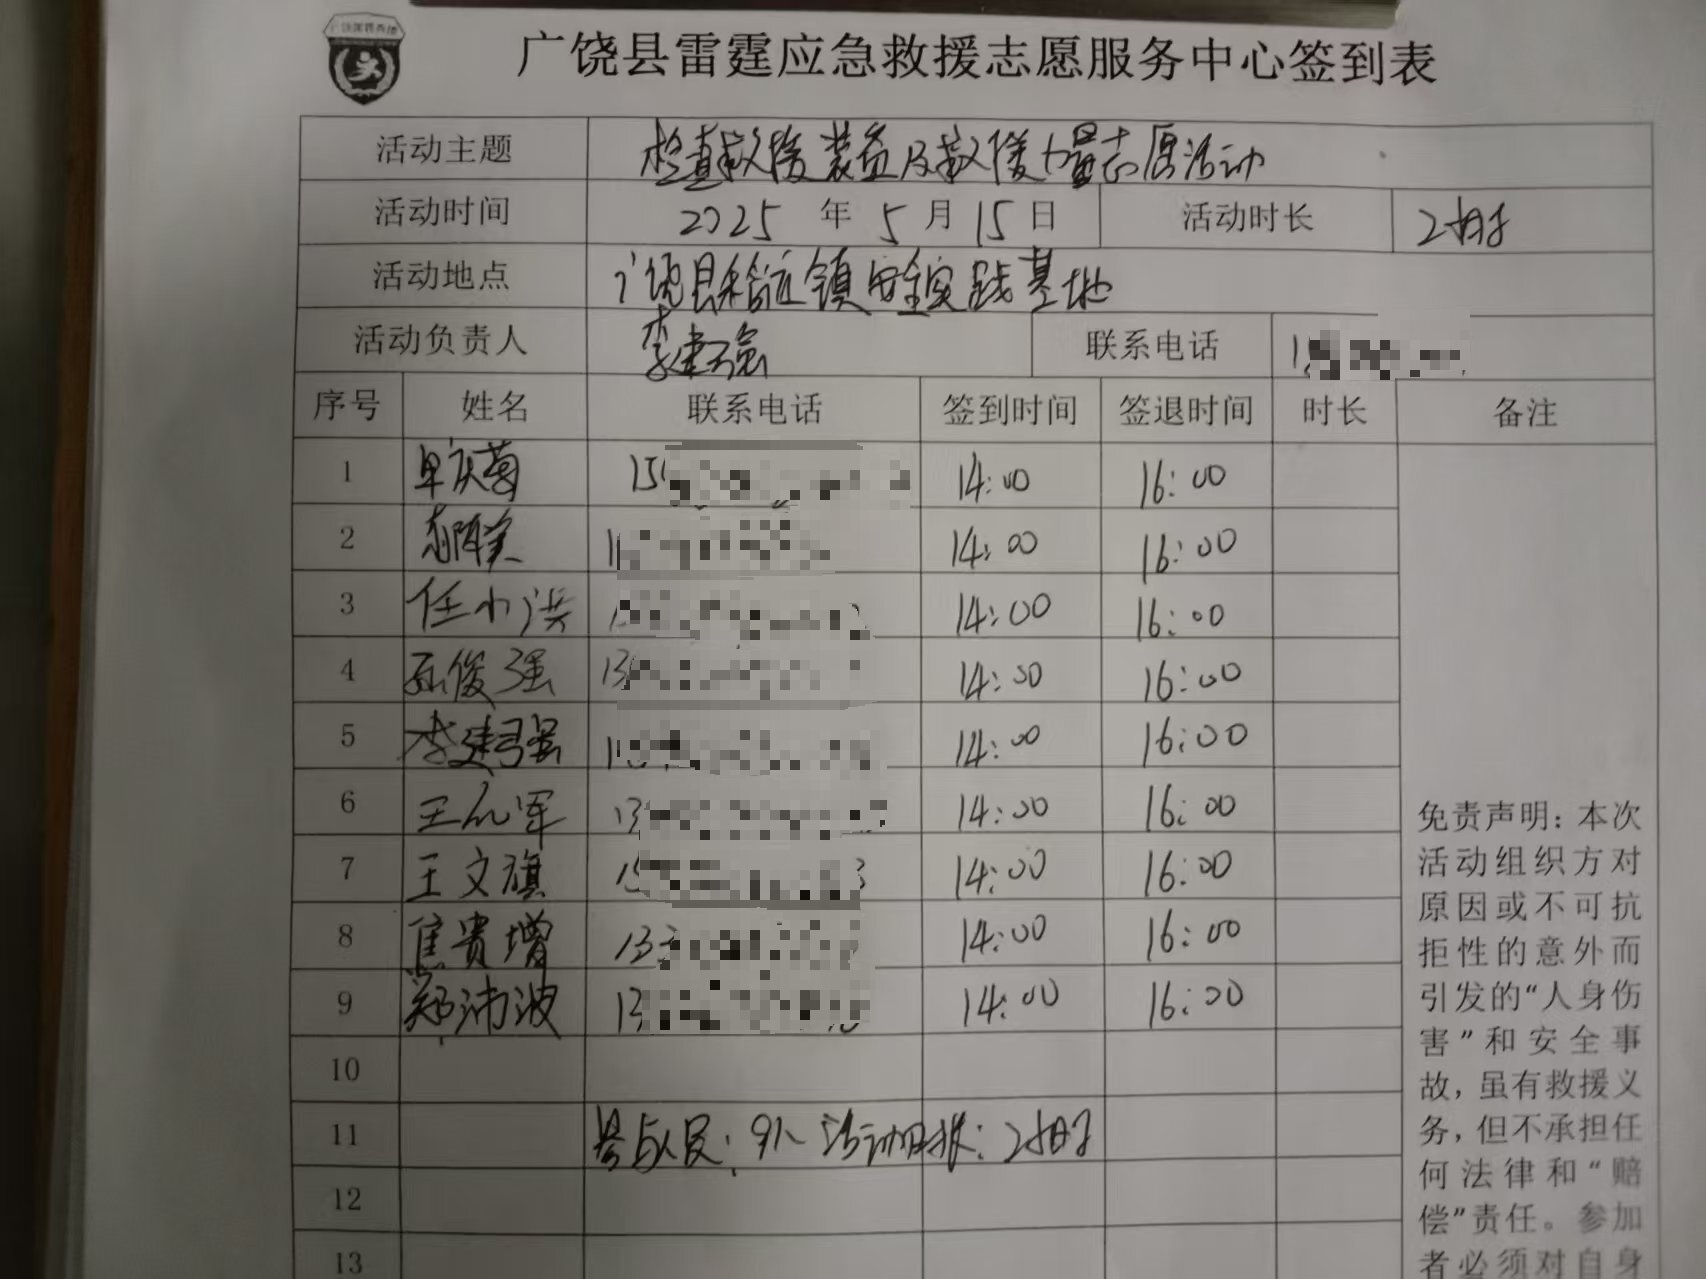 广饶县雷霆应急救援志愿服务中心签到表
活动主题 检查救援装备及救援力量志愿活动
活动时间 2025 年 5 月 15 日 活动时长 2小时
活动地点 广饶县稻庄镇安全实践基地
活动负责人 李建强 联系电话 1
序号 姓名 联系电话 签到时间 签退时间 时长 备注
1 单庆菊 15 14:00 16:00
2 1 14:00 16:00
3 任小洪 1 14:00 16:00
4 孙俊强 13 14:00 16:00
5 李建强 1 14:00 16:00
6 13 14:00 16:00
7 王文旗 15 3 14:00 16:00
8 焦贵增 133 14:00 16:00
9 郑沛波 13 14:00 16:00
10
11 参与人员:9人 活动时长:2小时
12
13
免责声明:本次
活动组织方对
原因或不可抗
拒性的意外而
引发的“人身伤
害”和安全事
故,虽有救援义
务,但不承担任
何法律和“赔
偿”责任。参加
者必须对自身